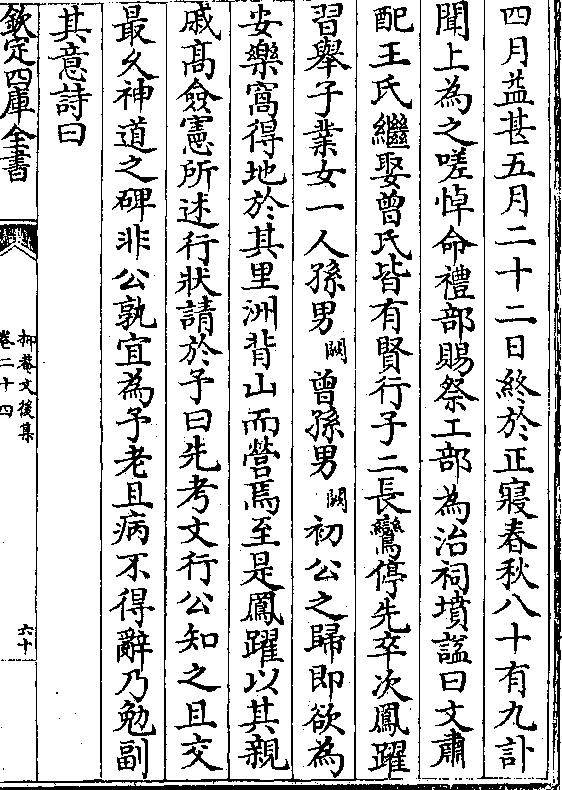 四月益甚五月二十二日終於正寢春秋八十有九訃
聞上為之嗟悼命禮部賜祭工部為治祠墳諡曰文肅
配王氏繼娶曾氏皆有賢行子二長鸞停先卒次鳳躍
習舉子業女一人孫男闕曾孫男闕初公之歸即欲為
安樂窩得地於其里洲背山而營焉至是鳳躍以其親
戚高僉憲所述行狀請於予曰先考文行公知之且交
最久神道之碑非公孰宜為予老且病不得辭乃勉副
其意詩曰
欽定四庫全書
抑菴文後集
卷二十四
六十